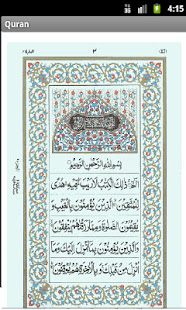 4:15
Quran
بِسْمِ اللهِ الرَّحْمٰنِ الرَّحِيْمِ
الٓمّٓ ذٰلِكَ الْكِتٰبُ لَا رَيْبَ فِيْهِ هُدًى
لِّلْمُتَّقِيْنَ الَّذِيْنَ يُؤْمِنُوْنَ بِالْغَيْبِ وَ
يُقِيْمُوْنَ الصَّلٰوةَ وَمِمَّا رَزَقْنٰهُمْ يُنْفِقُوْنَ
وَالَّذِيْنَ يُؤْمِنُوْنَ بِمَآ اُنْزِلَ اِلَيْكَ وَمَآ
اُنْزِلَ مِنْ قَبْلِكَ وَبِالْاٰخِرَةِ هُمْ يُوْقِنُوْنَ